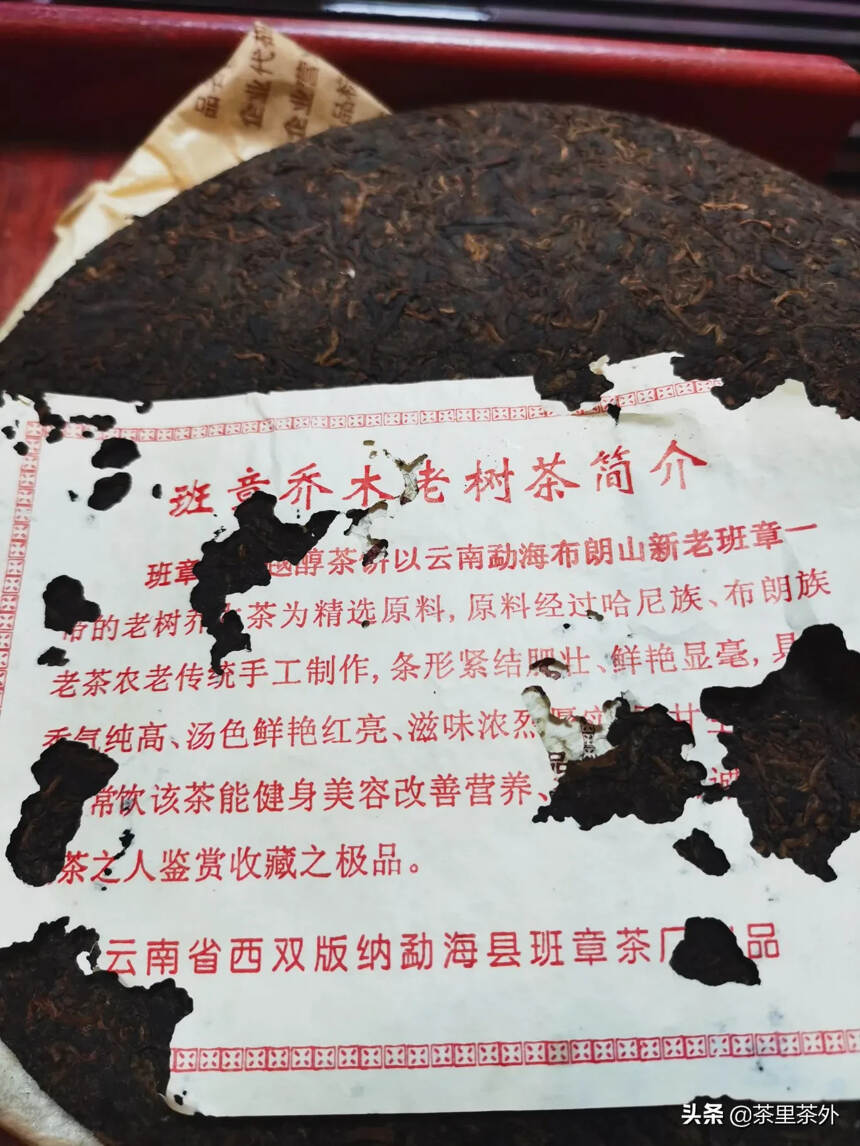 品
企业代
企业营
品标
班章乔木老树茶简介
班章 越醇茶饼以云南勐海布朗山新老班章一
带的老树乔木茶为精选原料,原料经过哈尼族、布朗族
老茶农老传统手工制作,条形紧结肥壮、鲜艳显毫,具
香气纯高、汤色鲜艳红亮、滋味浓烈
常饮该茶能健身美容改善营养、
茶之人鉴赏收藏之极品。
云南省西双版纳勐海县班章茶厂 品
头条 @茶里茶外